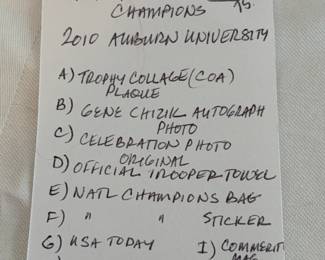 CHAMPIONS 75.
2010 AUBURN UNIVERSITY
A) TROPHY COLLAGE (COA)
PLAQUE
B) GENE CHIZIK AUTOGRAPH
PHOTO
C) CELEBRATION PHOTO
ORIGINAL
D) OFFICIAL TROOPER TOWEL
E) NATL CHAMPIONS BAG
F) " " STICKER
G) USA TODAY I) COMMERIT
MAG